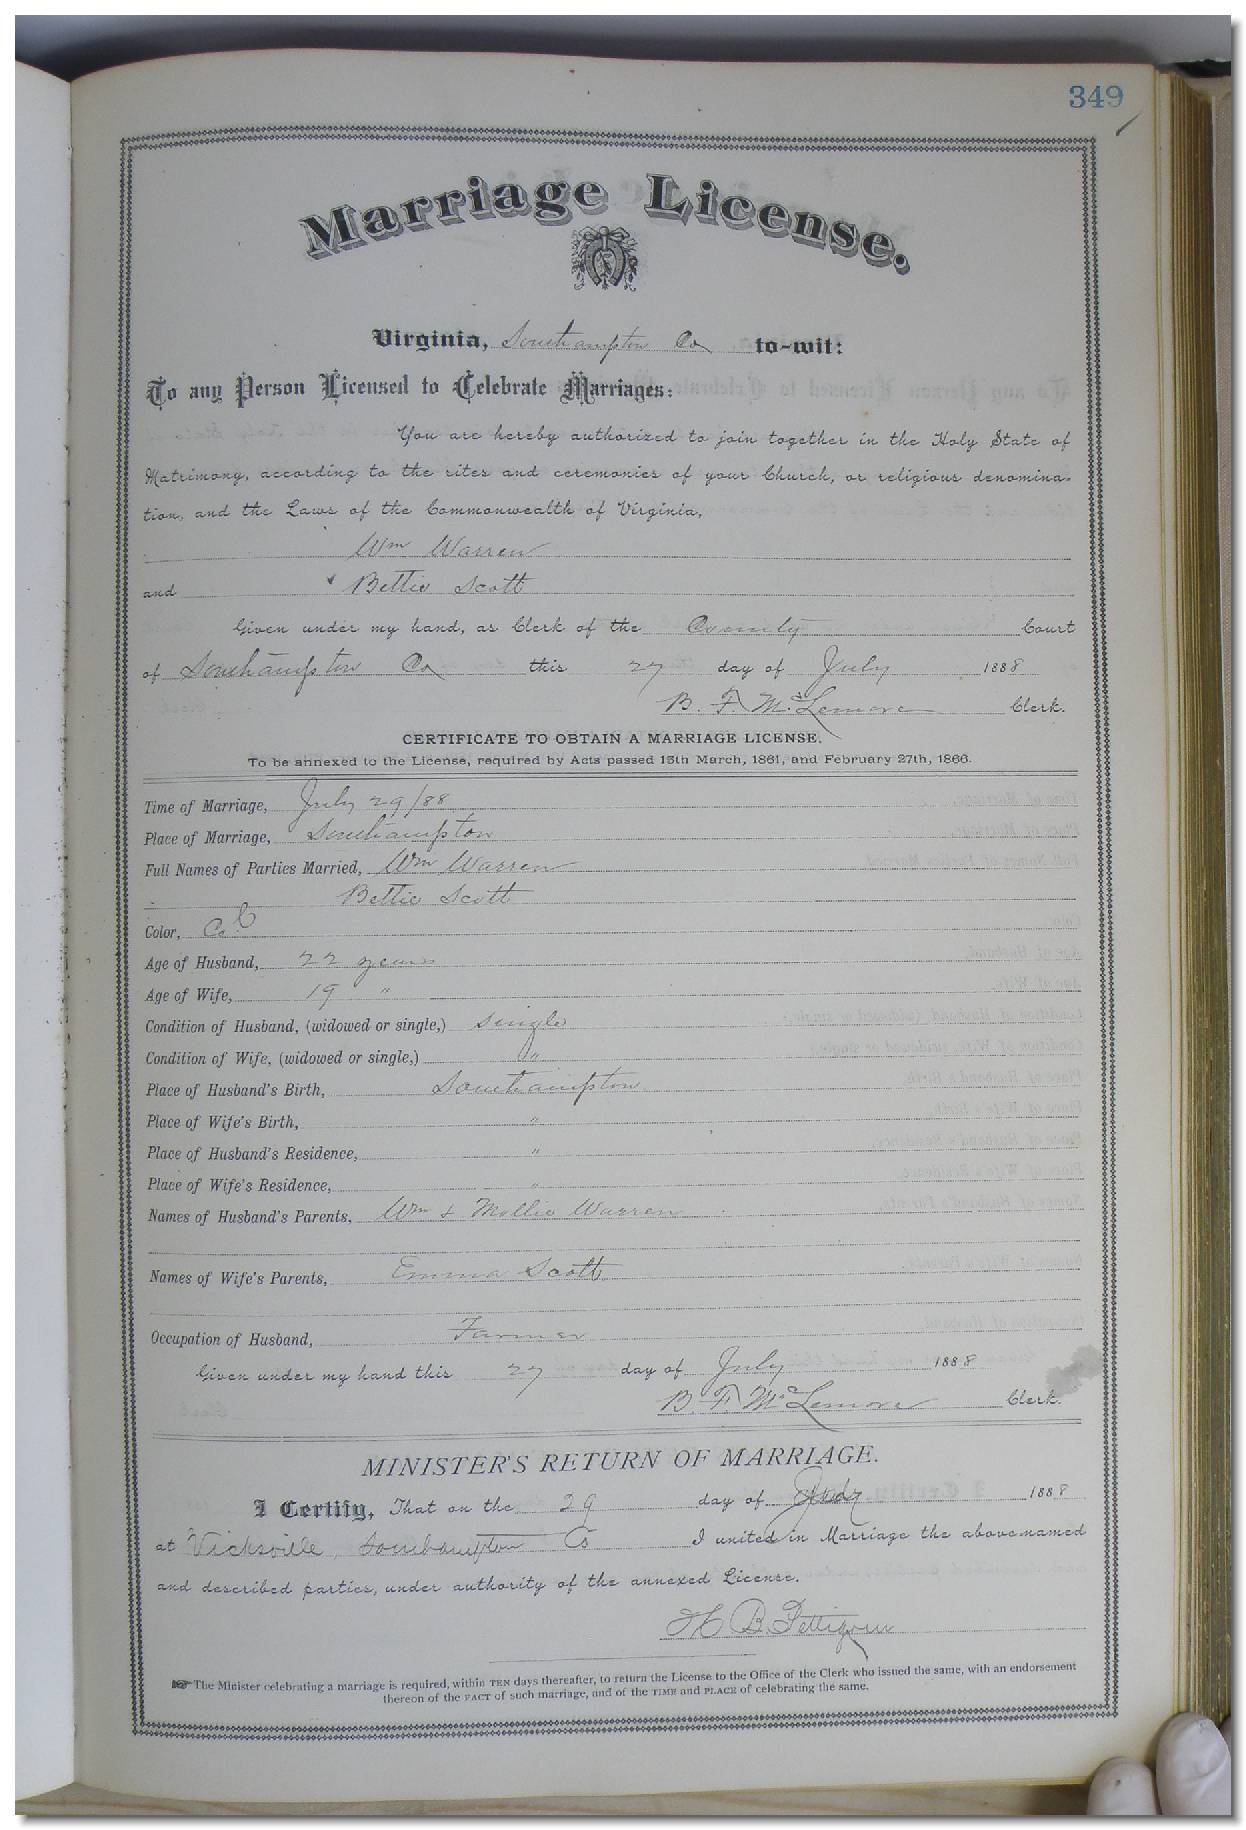 349
Marriage License.
Virginia, Southampton Co to-wit:
To any Person Licensed to Celebrate Marriages:
You are hereby authorized to join together in the Holy State of
Matrimony, according to the rites and ceremonies of your Church, or religious denomina-
tion, and the Laws of the Commonwealth of Virginia,
Wm Warren
and Bettie Scott
Given under my hand, as Clerk of the County Court
of Southampton Co this 27 day of July 1888
B. F. McLemore Clerk.
CERTIFICATE TO OBTAIN A MARRIAGE LICENSE.
To be annexed to the License, required by Acts passed 15th March, 1861, and February 27th, 1866.
Time of Marriage, July 29/88
Place of Marriage, Southampton
Full Names of Parties Married, Wm Warren
Bettie Scott
Color, Col
Age of Husband, 22 years
Age of Wife, 19 "
Condition of Husband, (widowed or single,) single
Condition of Wife, (widowed or single,) "
Place of Husband's Birth, Southampton
Place of Wife's Birth, "
Place of Husband's Residence, "
Place of Wife's Residence, "
Names of Husband's Parents, Wm & Mollie Warren
Names of Wife's Parents, Emma Scott
Occupation of Husband, Farmer
Given under my hand this 27 day of July 1888
B. F. McLemore Clerk.
MINISTER'S RETURN OF MARRIAGE.
I Certify, That on the 29 day of July 1888
at Vicksville, Southampton Co I united in Marriage the above-named
and described parties, under authority of the annexed License.
H B. Pettigrew
The Minister celebrating a marriage is required, within TEN days thereafter, to return the License to the Office of the Clerk who issued the same, with an endorsement
thereon of the FACT of such marriage, and of the TIME and PLACE of celebrating the same.